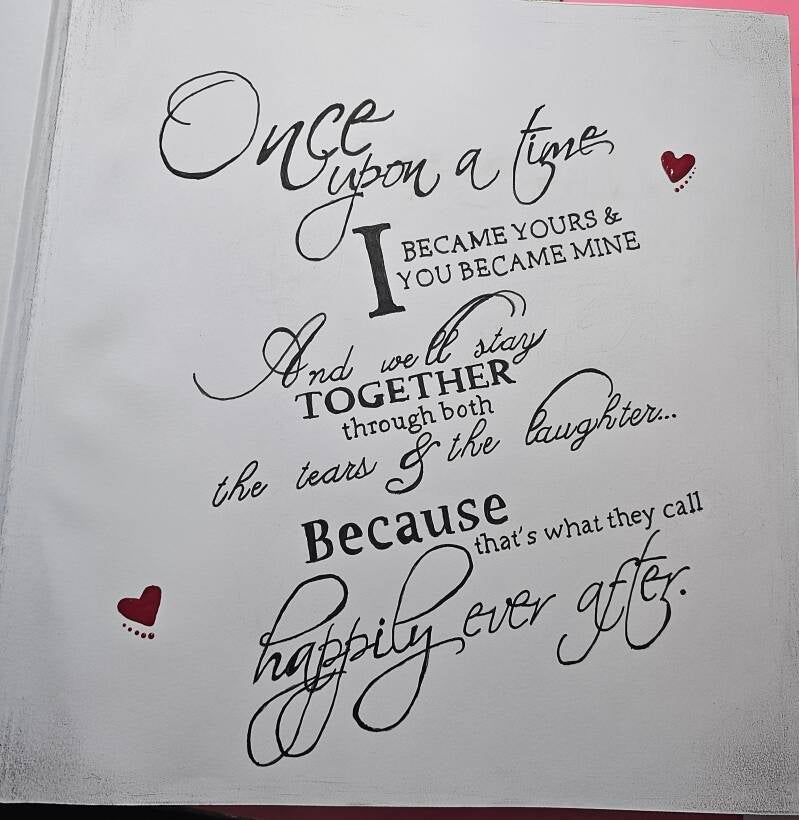 Once
upon a time
I BECAME YOURS &
YOU BECAME MINE
And we'll stay
TOGETHER
through both
the tears & the laughter...
Because
that's what they call
happily ever after.